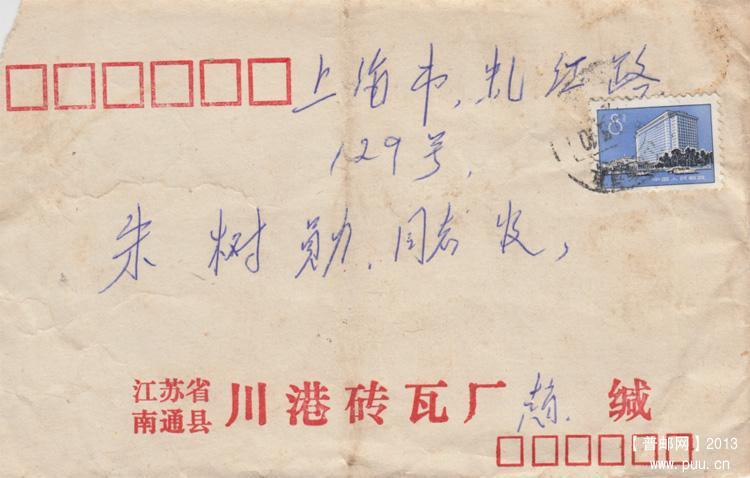 上海市、虬江路
129号，
朱树勋、同志收，
8
中国人民邮政
江苏省
南通县 川港砖瓦厂 缄
【普邮网】2013
www.puu.cn